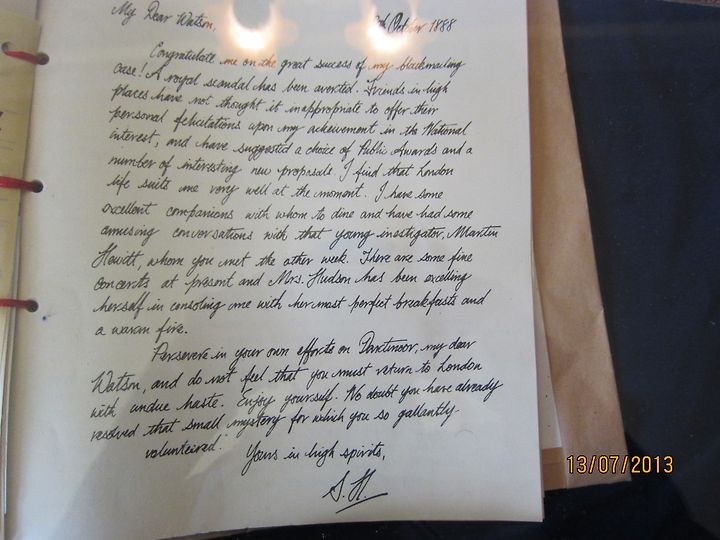 My Dear Watson,
October 1888
Congratulate me on the great success of my blackmailing
case! A royal scandal has been averted. Friends in high
places have not thought it inappropriate to offer their
personal felicitations upon my acheivement in the National
interest, and have suggested a choice of Public Awards and a
number of interesting new proposals. I find that London
life suits me very well at the moment. I have some
excellent companions with whom to dine and have had some
amusing conversations with that young inestigator, Martin
Hewitt, whom you met the other week. There are some fine
concerts at present and Mrs. Hudson has been excelling
herself in consoling me with her most perfect breakfasts and
a warm fire.
Persevere in your own efforts on Dartmoor, my dear
Watson, and do not feel that you must return to London
with undue haste. Enjoy yourself. No doubt you have already
resolved that small mystery for which you so gallantly
volunteered!
Yours in high spirits,
S.H.
13/07/2013